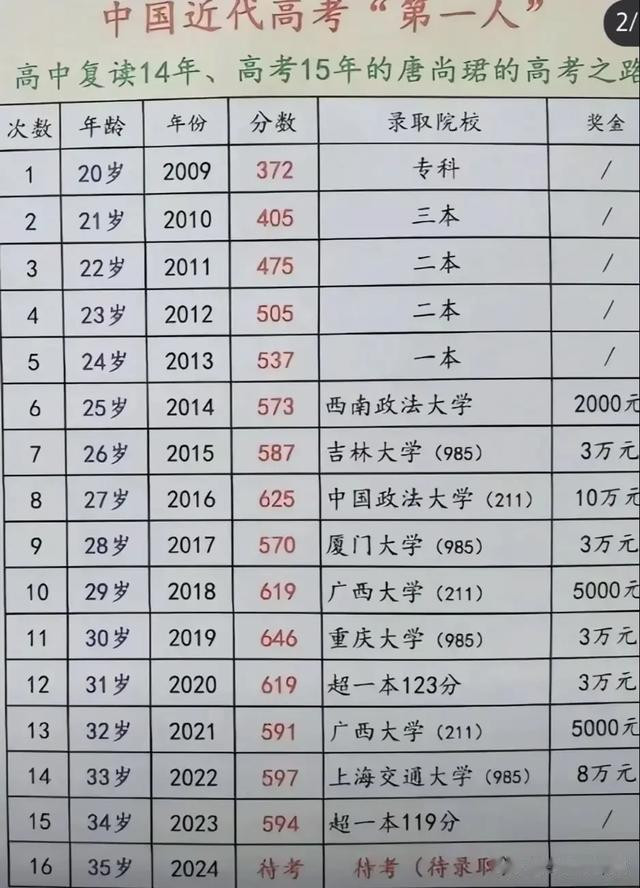 中国近代高考“第一人”
2/
高中复读14年、高考15年的唐尚珺的高考之路
次数 年龄 年份 分数 录取院校 奖金
1 20岁 2009 372 专科 /
2 21岁 2010 405 三本 /
3 22岁 2011 475 二本 /
4 23岁 2012 505 二本 /
5 24岁 2013 537 一本 /
6 25岁 2014 573 西南政法大学 2000元
7 26岁 2015 587 吉林大学（985） 3万元
8 27岁 2016 625 中国政法大学（211） 10万元
9 28岁 2017 570 厦门大学（985） 3万元
10 29岁 2018 619 广西大学（211） 5000元
11 30岁 2019 646 重庆大学（985） 3万元
12 31岁 2020 619 超一本123分 3万元
13 32岁 2021 591 广西大学（211） 5000元
14 33岁 2022 597 上海交通大学（985） 8万元
15 34岁 2023 594 超一本119分 /
16 35岁 2024 待考 待考（待录取）